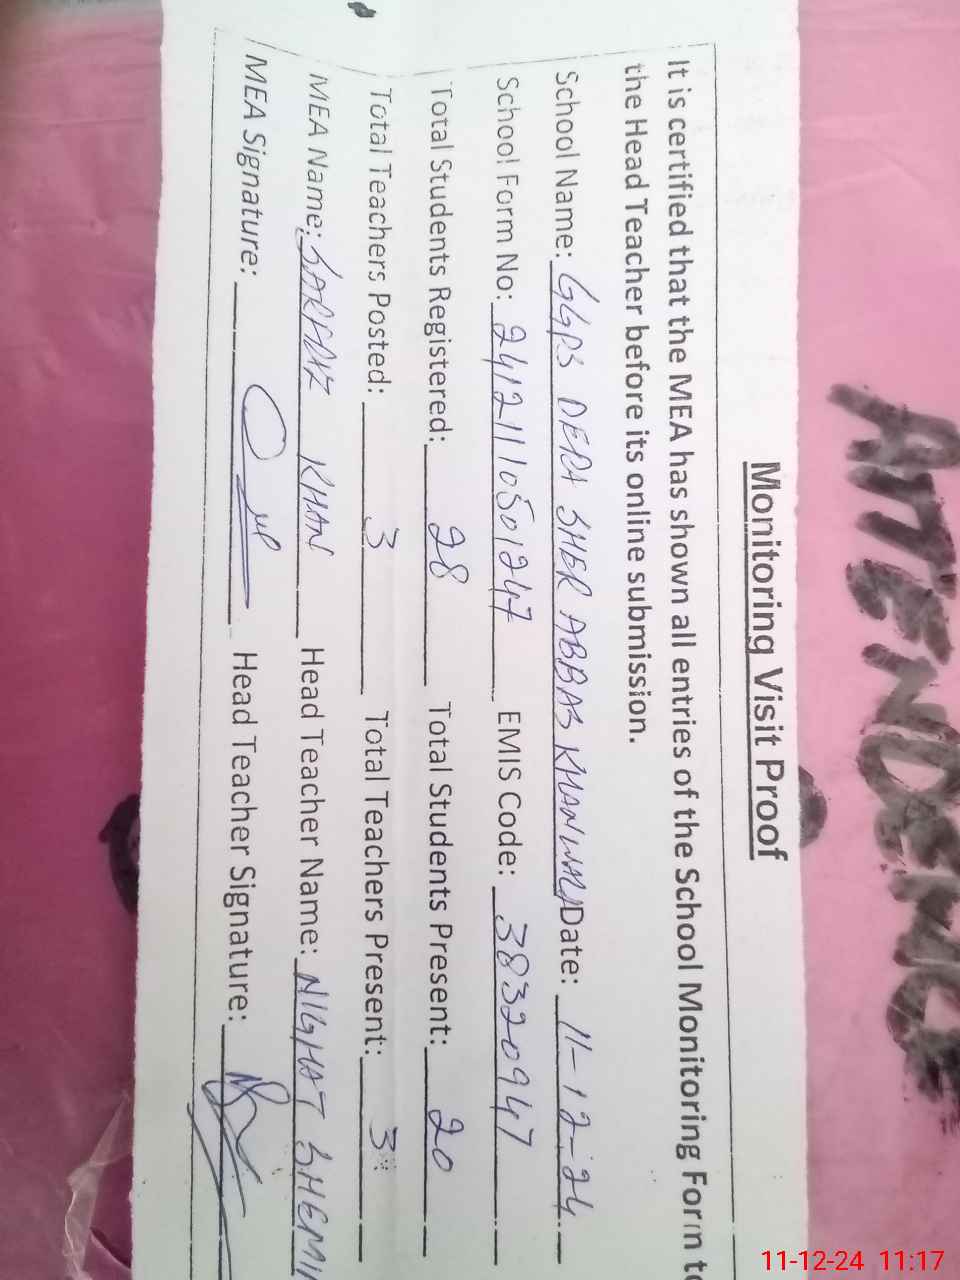 ATTENDENCE
Monitoring Visit Proof
It is certified that the MEA has shown all entries of the School Monitoring Form to
the Head Teacher before its online submission.
School Name: GGPS DERA SHER ABBAS KHANWALA Date: 11-12-24
School Form No: 24121110501247 EMIS Code: 38320947
Total Students Registered: 28 Total Students Present: 20
Total Teachers Posted: 3 Total Teachers Present: 3
MEA Name: SARFRAZ KHAN Head Teacher Name: NIGHAT SHEMI
MEA Signature: Head Teacher Signature:
11-12-24 11:17